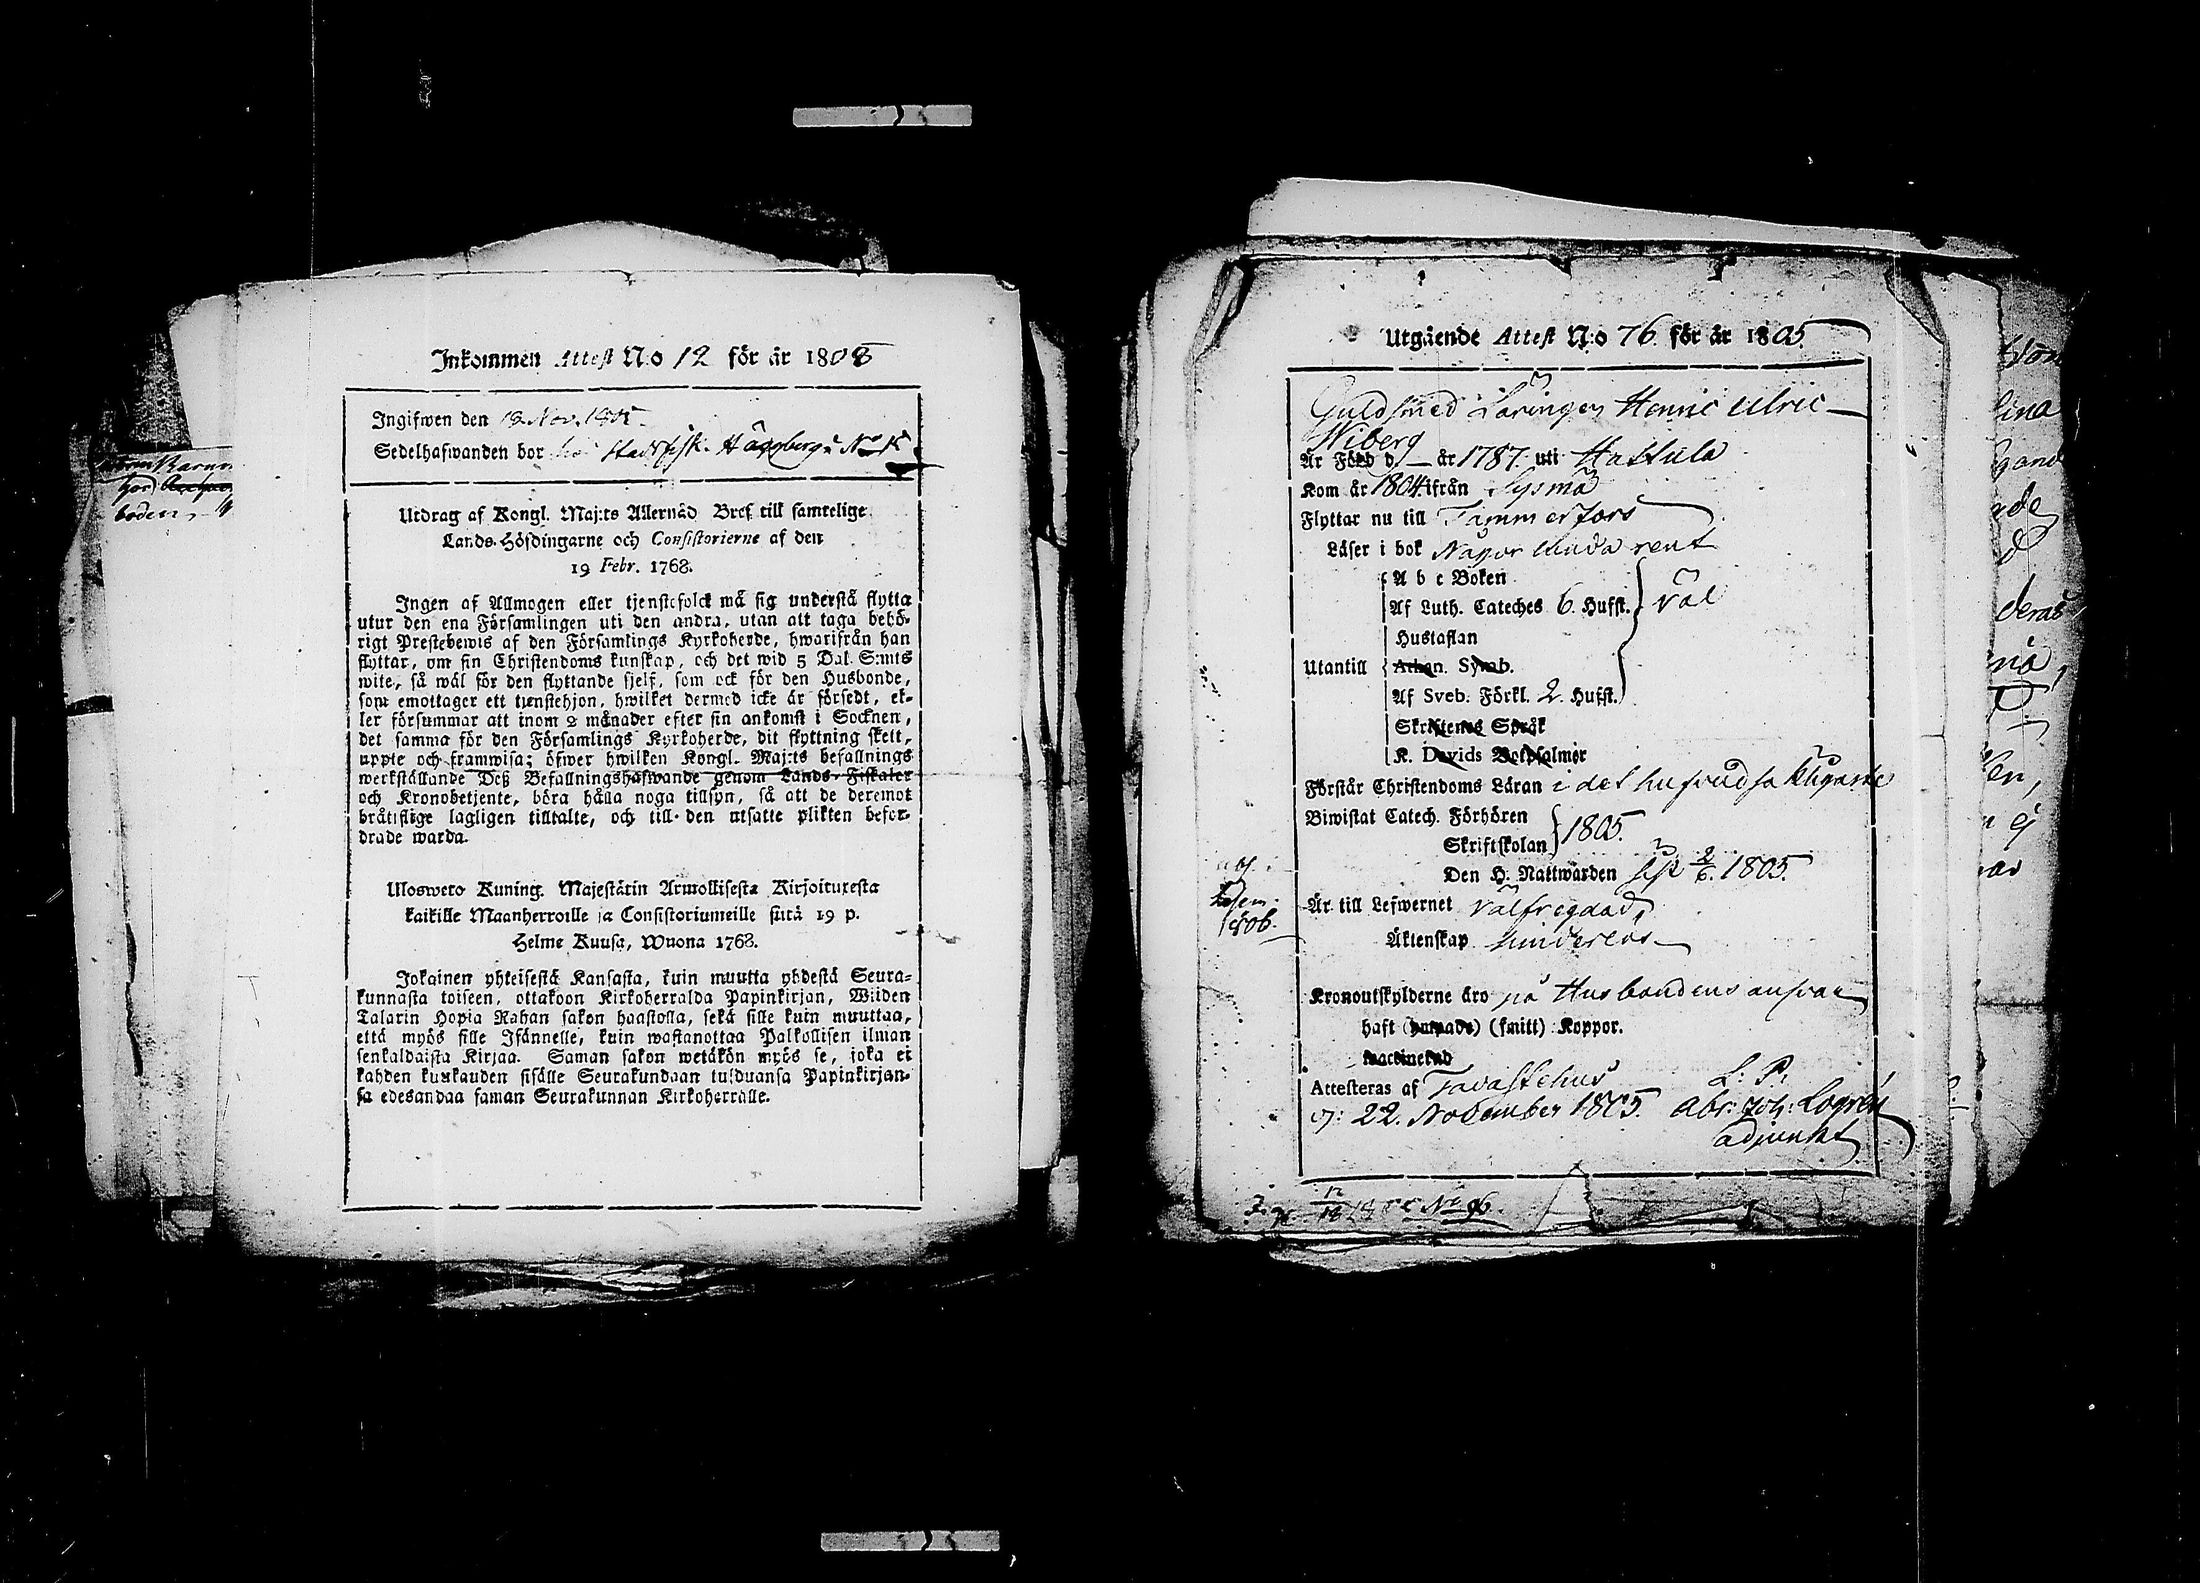 Inkommen Attest N:o 12 för år 1808
Ingifwen den 19 Nov. 1805.
Sedelhafwanden bor hos Stadsfisk. Häggberg i No
Utdrag af Kongl. Maj:ts Allernåd. Bref till samtelige
Lands-Höfdingarne och Consistorierne af den
19 Febr. 1768.
Ingen af Allmogen eller tjenstefolck må sig understå flytta
utur den ena Församlingen uti den andra, utan att taga behö-
rigt Prestebewis af den Församlings Kyrkoherde, hwarifrån han
flyttar, om sin Christendoms kunskap, och det wid 5 Dal. S:mts
wite, så wäl för den flyttande sjelf, som ock för den Husbonde,
som emottager ett tjenstehjon, hwilket dermed icke är försedt, el-
ler försummar att inom 2 månader efter sin ankomst i Socknen,
det samma för den Församlings Kyrkoherde, dit flyttning skett,
uppte och framwisa; öfwer hwilken Kongl. Maj:ts befallnings
werkställande Deß Befallningshafwande genom Lands-Fiskaler
och Kronobetjente, böra hålla noga tillsyn, så att de deremot
brätislige lagligen tilltalte, och till den utsatte plikten befor-
drade warda.
Ulosweto Kuning. Majestätin Armollisesta Kirjoituxesta
kaikille Maanherroille ja Consistoriumeille siitä 19 p.
Helme Kuusa, Wuona 1768.
Jokainen yhteisestä Kansasta, kuin muutta yhdestä Seura-
kunnasta toiseen, ottakoon Kirkoherralda Papinkirjan, Wiiden
Talarin Hopia Rahan sakon haastolla, sekä sille kuin muuttaa,
että myös sille Isännelle, kuin wastanottaa Palkollisen ilman
senkaldaista Kirjaa. Saman sakon wetäkön myös se, joka ei
kahden kuukauden sisälle Seurakundaan tulduansa Papinkirjan-
sa edesandaa saman Seurakunnan Kirkoherralle.
Utgående Attest N:o 76 för år 1805
Guldsmed Läringen Henric Ulric
Wiberg
Är Född d. — år 1787. uti Hattula
Kom år 1804. ifrån Sysmä
Flyttar nu till Tammerfors
Läser i bok Någorlunda rent
A b c Boken
Af Luth. Cateches 6. Hufst. väl
Hustaflan
Utantill Athan. Symb.
Af Sveb. Förkl. 2. Hufst.
Skriftenes Språk
K. Davids Botpsalmer
Förstår Christendoms Läran i det hufvudsakligaste
Biwistat Catech. Förhören
Skriftskolan 1805.
Den H. Nattwarden sist 2/6. 1805.
Är till Lefwernet välfregdad,
Äktenskap hinderlös
Kronoutskylderne äro på Husbondens ansvar
haft (ympade) (smitt) Koppor.
vaccinerad
Attesteras af Tavastehus L: P:
d: 22. November 1805. Abr: Joh: Logrén
adjunkt